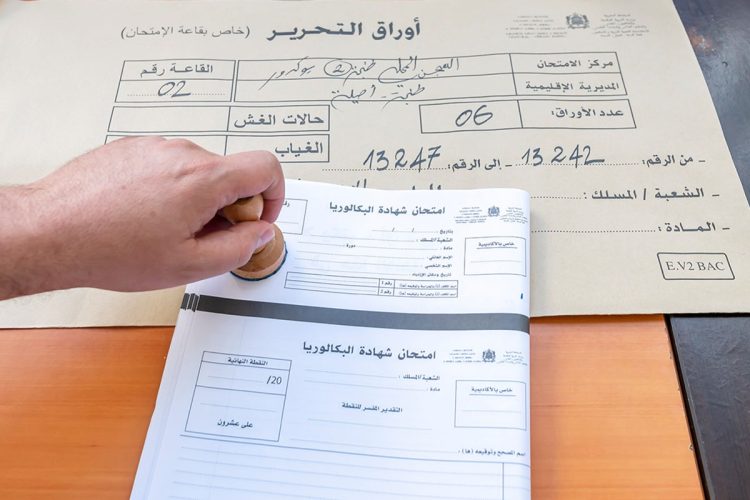 أوراق التحرير (خاص بقاعة الإمتحان)
مركز الامتحان
المديرية الإقليمية
طنجة - أصيلة
القاعة رقم
02
عدد الأوراق: 06
حالات الغش
الغياب
- من الرقم: 13242 إلى الرقم: 13247
- الشعبة / المسلك:
- المادة:
E.V2 BAC
امتحان شهادة البكالوريا
خاص بالأكاديمية
بتاريخ / /
الشعبة/المسلك:
مادة: دورة:
الإسم العائلي:
الإسم الشخصي:
تاريخ ومكان الازدياد
رقم 1
رقم 2
امتحان شهادة البكالوريا
خاص بالأكاديمية
الشعبة/المسلك:
مادة:
التقدير المفسر للنقطة
النقطة النهائية
/20
على عشرون
اسم المصحح وتوقيعه (ها):